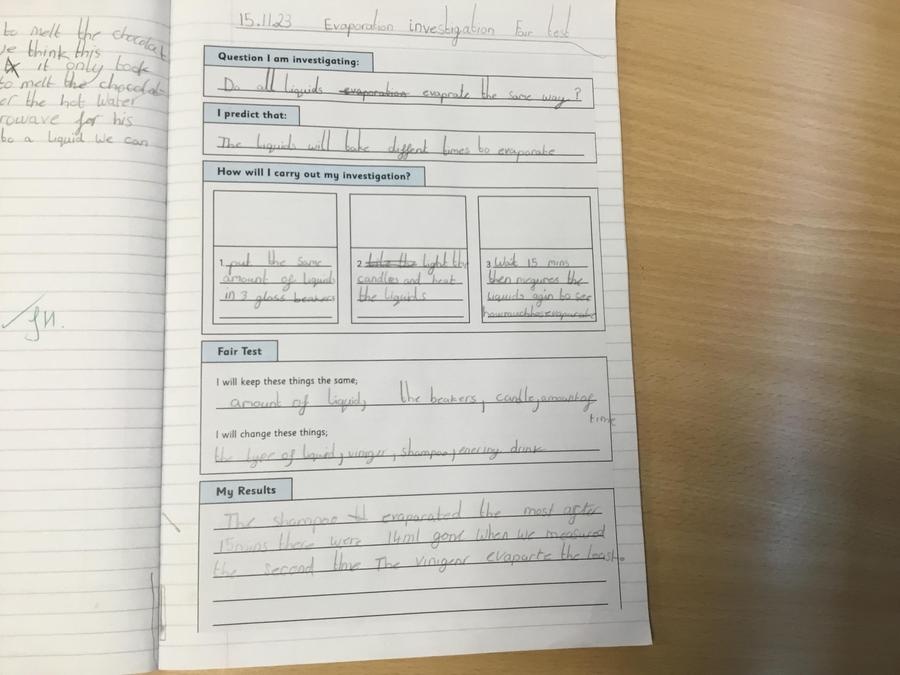 to melt the chocolat
we think this
it only took
to melt the chocolat
er the hot water
rowave for his
to a liquid we can
JH.
15.11.23 Evaporation investigation Fair test
Question I am investigating:
Do all liquids evaporation evaprate the same way?
I predict that:
The liquids will take diffent times to evaporate
How will I carry out my investigation?
1. put the same
amount of liquid
in 3 glass beakers
2 take the light the
candles and heat
the liquids
3 Wait 15 mins
then megures the
liquids agin to see
how much has evaporated
Fair Test
I will keep these things the same;
amount of liquid, the beakers, candle, amount of
time
I will change these things;
the type of liquid, viniger, shampoo, enering drink
My Results
The shampoo evaporated the most after
15mins there were 14ml gone when we measured
the second time The vinigear evaparte the least.